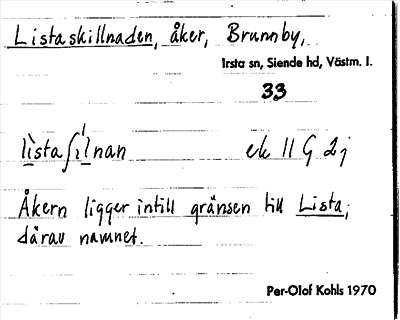 Listaskillnaden, åker, Brunnby,
Irsta sn, Siende hd, Västm. l.
33
lìstaʃıl̍nan ek 11 G 2j
Åkern ligger intill gränsen till Lista;
därav namnet.
Per-Olof Kohls 1970